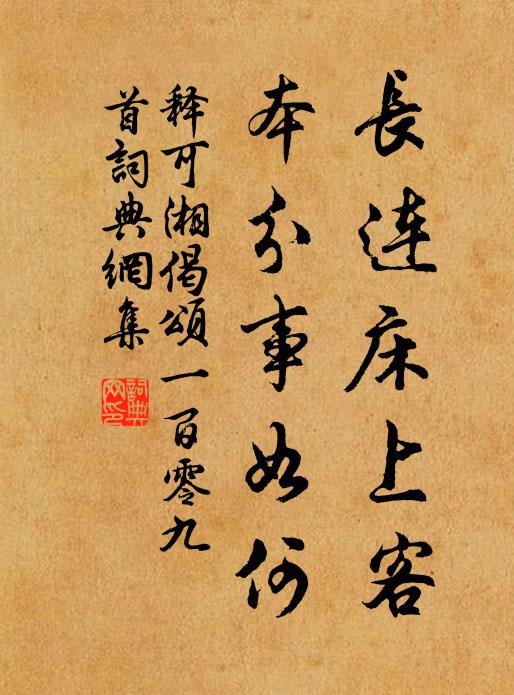 長连床上客
本分事如何
释可湘偈頌一百零九
首詞典網集
詞典
网印